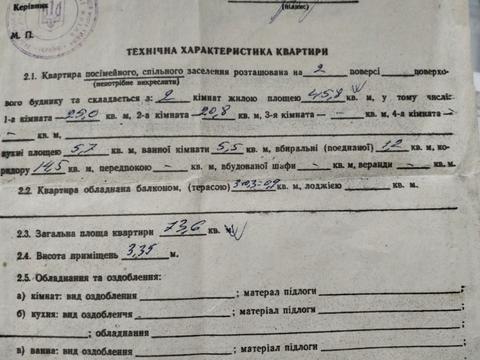 Керівник
(підпис)
М. П.
ТЕХНІЧНА ХАРАКТЕРИСТИКА КВАРТИРИ
2.1. Квартира посімейного, спільного заселення розташована на 2 поверсі поверхо-
(непотрібне викреслити)
вого будинку та складається з: 2 кімнат жилою площею 45,8 кв. м, у тому числі:
1-а кімната 25,0 кв. м, 2-а кімната 20,8 кв. м, 3-я кімната — кв. м, 4-а кімната —
— кв. м,
кухні площею 5,7 кв. м, ванної кімнати 5,5 кв. м, вбиральні (поєднаної) 1,2 кв. м, ко-
ридору 14,5 кв. м, передпокою — кв. м, вбудованої шафи — кв. м, веранди — кв. м.
2.2. Квартира обладнана балконом, (терасою) 3×0,3=0,9 кв. м, лоджією кв. м.
2.3. Загальна площа квартири 73,6 кв. м
2.4. Висота приміщень 3,35 м.
2.5. Обладнання та оздоблення:
а) кімнат: вид оздоблення ; матерал підлоги
б) кухня: вид оздоблення ; матеріал підлоги
; обладнання
в) ванна: вид оздоблення ; матеріал підлоги